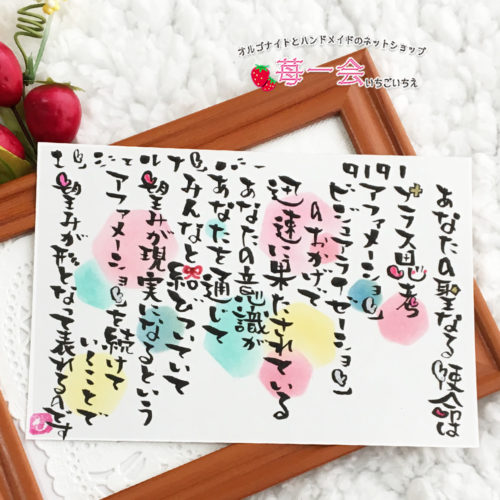 オルゴナイトとハンドメイドのネットショップ
苺一会
いちごいちえ
エンジェルナンバー
9191
あなたの聖なる使命は
プラス思考
アファメーション
ビジュアライゼーション
のおかげで
迅速に果たされている
あなたの意識が
あなたを通じて
みんなと結びついていて
望みが現実になるという
アファメーションを続けて
いくことで
望みが形となって表れるのです